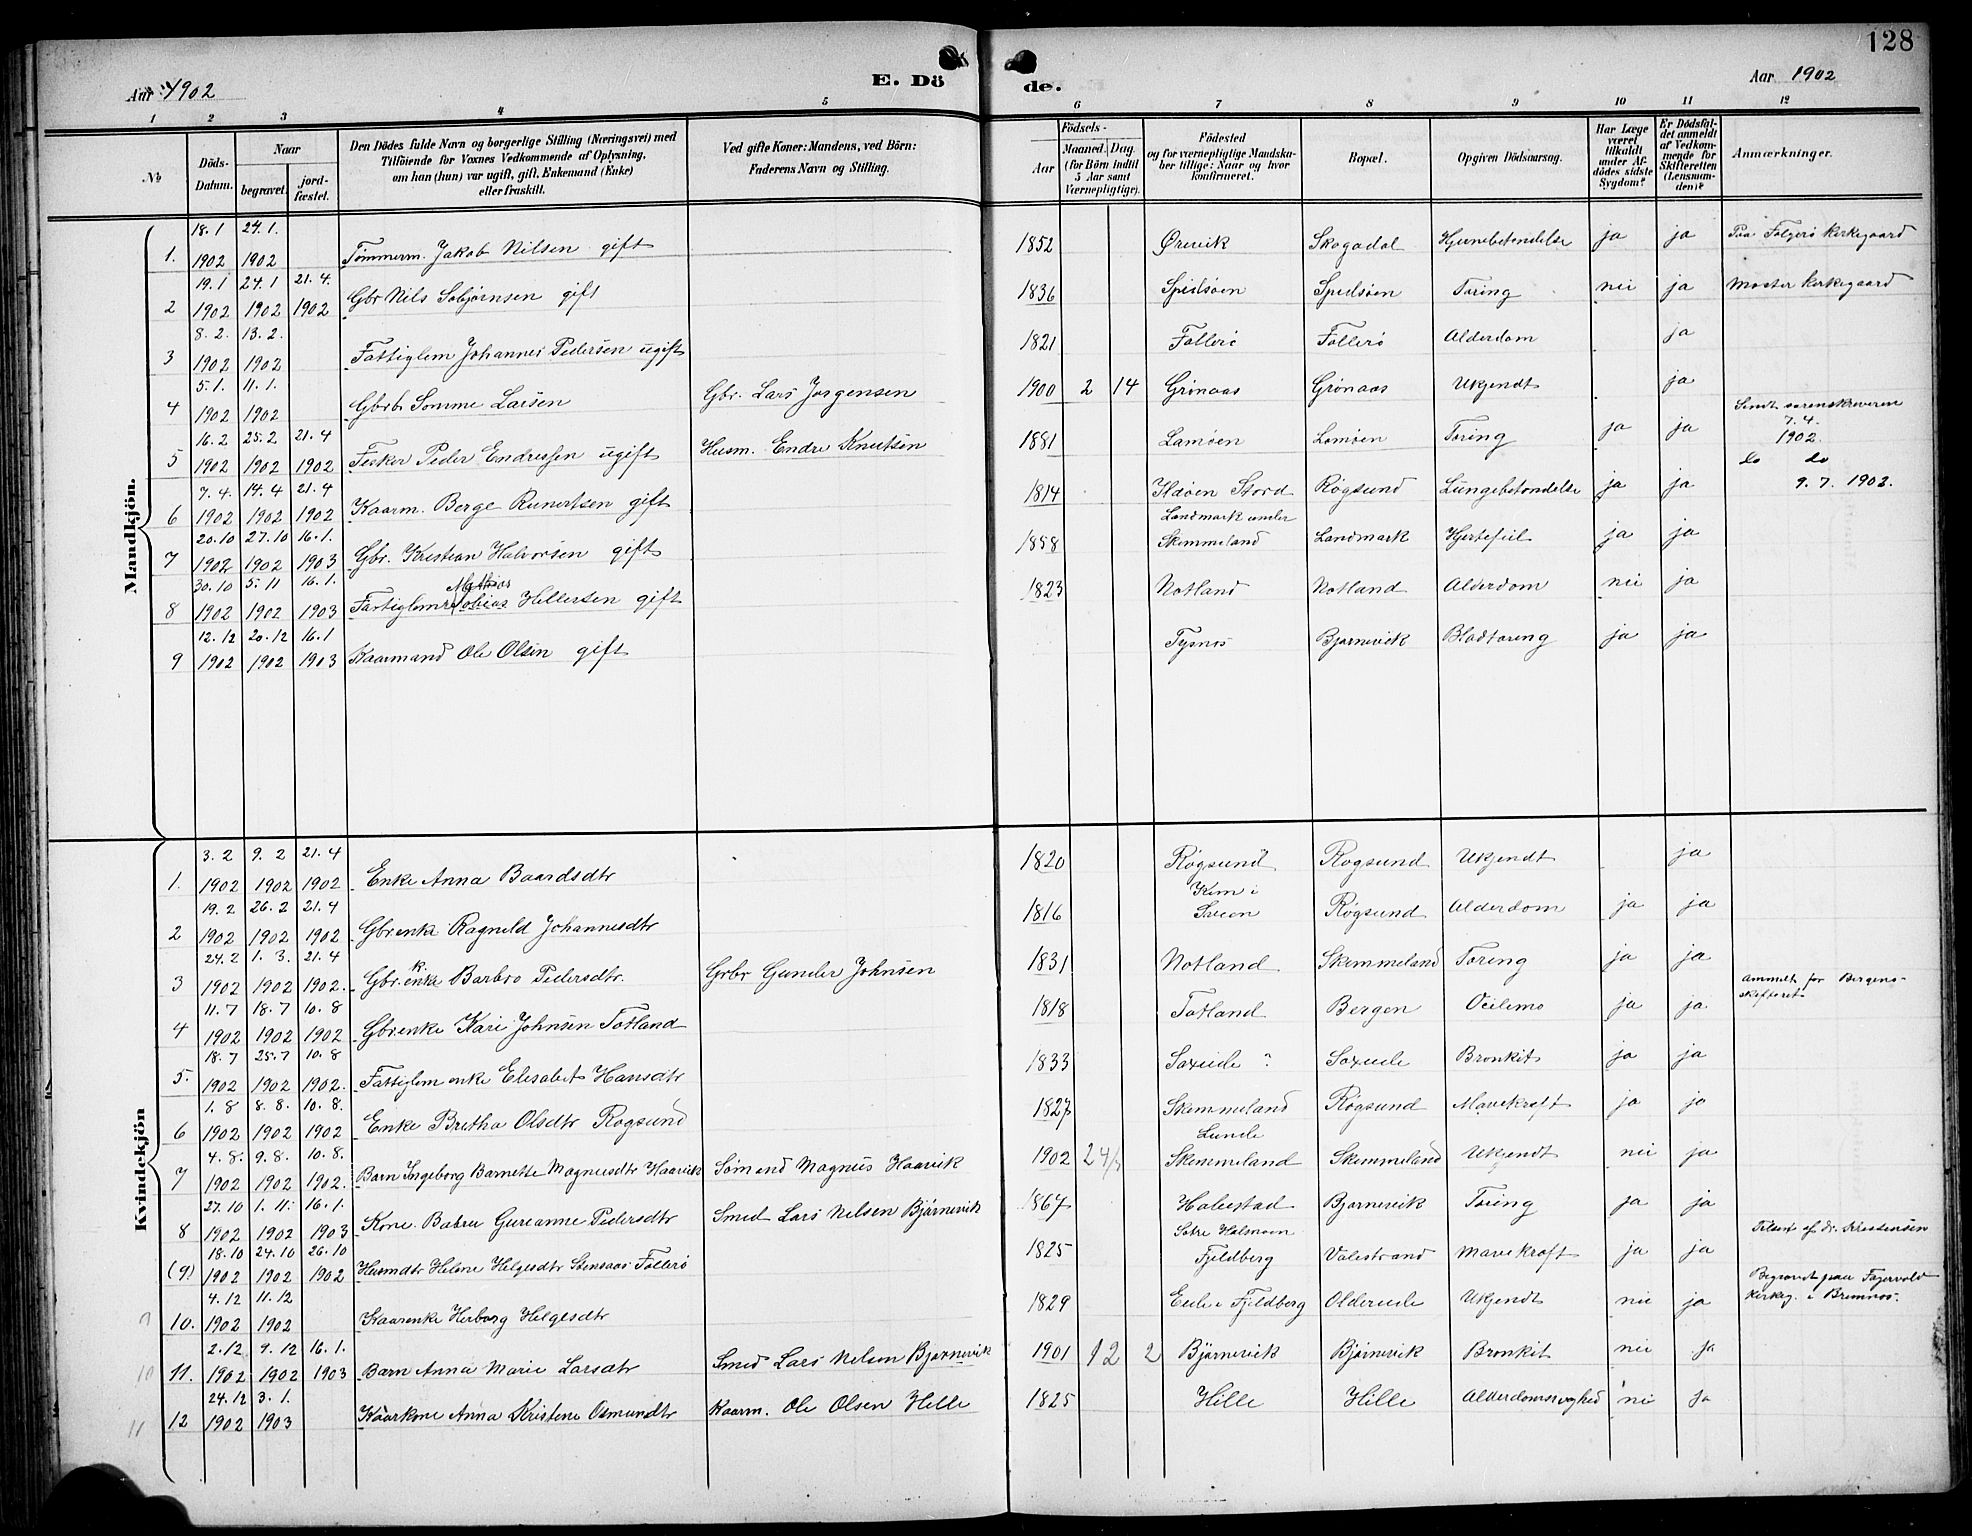 128
Aar 1902
E. Dö
de.
Aar 1902
1 2 3 4 5 6 7 8 9 10 11 12
№
Döds-
Datum.
Naar
begravet.
jord-
fæstet.
Den Dödes fulde Navn og borgerlige Stilling (Næringsvei) med
Tilföiende for Voxnes Vedkommende af Oplysning,
om han (hun) var ugift, gift, Enkemand (Enke)
eller fraskilt.
Ved gifte Koner: Mandens, ved Börn:
Faderens Navn og Stilling.
Födsels-
Aar
Maaned.
Dag.
(for Börn indtil
5 Aar samt
Værnepligtige).
Födested
og for værnepligtige Mandska-
ber tillige: Naar og hvor
konfirmeret.
Bopæl.
Opgiven Dödsaarsag.
Har Læge
været
tilkaldt
under Af-
dödes sidste
Sygdom?
Er Dödsfal-
det anmeldt
af Vedkom-
mende for
Skifteretten
(Lensman-
den)?
Anmærkninger.
Mandkjön.
18.1 24.1.
1. 1902 1902 Tømmerm. Jakob Nilsen gift 1852 Ørevik Skogadal Hjernebetændelse ja ja Paa Folgerø Kirkegaard
19.1 24.1 21.4.
2 1902 1902 1902 Gbr Nils Sobjørnsen gift 1836 Spidsøen Spidsøen Tæring nei ja Moster Kirkegaard
8.2. 13.2.
3 1902 1902 Fattiglem Johannes Pedersen ugift 1821 Follerø Follerø Alderdom ja
5.1. 11.1.
4 1902 1902 Gbrb Somme Larsen Gbr. Lars Jørgensen 1900 2 14 Grønaas Grønaas Ukjendt ja
16.2 25.2 21.4
5 1902 1902 1902 Fisker Peder Endresen ugift Husm. Endre Knutsen 1881 Lamøen Lamøen Tæring ja ja Sendt sorenskriveren
7.4.
1902.
7.4. 14.4 21.4
6 1902 1902 1902 Kaarm. Berge Runertsen gift 1814 Ildøen Stord Røgsund Lungebetændelse ja ja do do
9.7. 1902.
20.10 27.10 16.1.
7 1902 1902 1903 Gbr. Kristian Halvorsen gift 1858 Landmark under
Skimmeland Landmark Hjertefeil ja ja
30.10 5.11 16.1.
8 1902 1902 1903 Fattiglem Mathias Hillersen gift 1823 Notland Notland Alderdom nei ja
12.12 20.12 16.1
9 1902 1902 1903 Kaarmand Ole Olsen gift Tysnes Bjørnevik Blodtæring ja ja
Kvindekjön
3.2 9.2 21.4
1. 1902 1902 1902 Enke Anna Baardsdtr 1820 Røgsund Røgsund Ukjendt ja
19.2 26.2 21.4
2 1902 1902 1902 Gbrenke Ragnild Johannesdtr 1816 Røgsund Alderdom ja ja
24.2 1.3. 21.4
3 1902 1902 1902. Gbr.k. Barbro Pedersdtr. Grbr Gunder Johnsen 1831 Notland Skimmeland Tæring ja ja
11.7 18.7 10.8
4 1902 1902 1902 Gbrenke Kari Johnsen Totland 1818 Totland Bergen ja ja anmeldt for Bergens
skifteret
18.7 25.7 10.8
5. 1902 1902 1902. Fattiglem enke Elisabet Hansdtr 1833 Saxeide ? Saxeide Bronkit ja ja
1.8 8.8. 10.8.
6 1902 1902 1902 Enke Britha Olsdtr Røgsund 1827 Skimmeland Røgsund Mavekræft ja ja
4.8. 9.8. 10.8.
7 1902 1902 1902. Barn Ingeborg Barnette Magnusdtr Haavik Sømand Magnus Haavik 1902 Lunde
Skimmeland Skimmeland Ukjendt nei ja
27.10 1.11. 16.1.
8 1902 1902 1903 Kone Gureanne Pedersdtr Smed Lars Nilsen Bjørnevik 1867 Bjørnevik Tæring ja ja
18.10 24.10 26.10
(9) 1902 1902 1902 Husmdtr Helene Helgesdtr Stensaas Follerø 1825 Fjeldberg Valestrand Mavekræft ja ja Tilseet af dr. Kristensen
4.12 11.12
10. 1902 1902 Kaarenke Herborg Helgesdtr 1829 Eide i Fjeldberg Oldereide Ukjendt nei ja Begravet paa Fagervold
kirkeg. i Bremnes.
2.12 9.12 16.1.
10 11. 1902 1902 1903 Barn Anna Marie Larsdtr Smed Lars Nilsen Bjørnevik 1901 12 2 Bjørnevik Bjørnevik Bronkit nei ja
24.12 3.1.
11 12 1902 1903 Kaarkone Anna Kristene Osmundtr Kaarm. Ole Olsen Hille 1825 Hille Hille Alderdomssvaghed nei ja